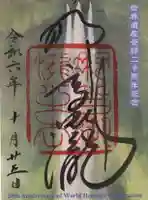 世界遺産登録二十周年記念
那智御瀧
令和六年 十月廿三日
20th Anniversary of World Heritage